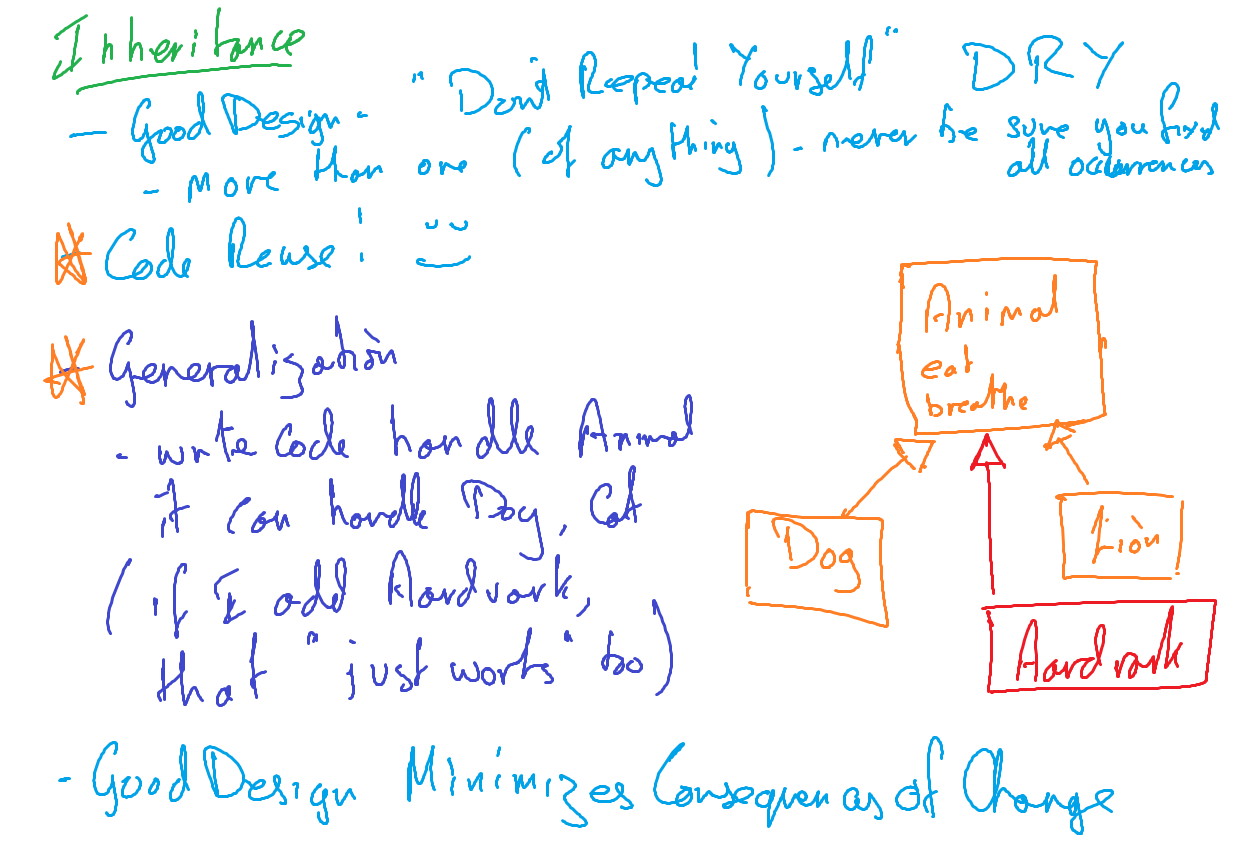 Inheritance
- Good Design - "Don't Repeat Yourself" DRY
- more than one (of anything) - never be sure you fixed
all occurrences
Code Reuse!
Generalization
- write code handle Animal
it can handle Dog, Cat
(if I add Aardvark,
that "just works" too)
Animal
eat
breathe
Dog
Lion
Aardvark
- Good Design Minimizes Consequences of Change